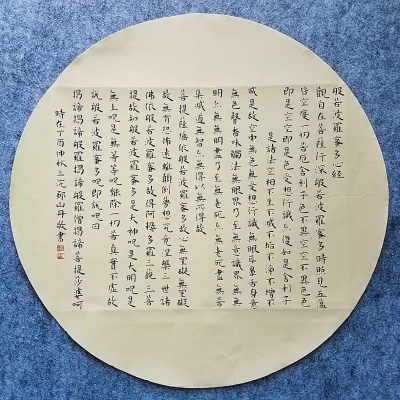 般若波羅蜜多心经
觀自在菩薩行深般若波羅蜜多時照見五蘊
皆空度一切苦厄舍利子色不異空空不異色色
即是空空即是色受想行識亦復如是舍利子
是諸法空相不生不滅不垢不淨不增不
減是故空中無色無受想行識無眼耳鼻舌身意
無色聲香味觸法無眼界乃至無意識界無無
明亦無無明盡乃至無老死亦無老死盡無苦
集滅道無智亦無得以無所得故
菩提薩埵依般若波羅蜜多故心無罣礙無罣礙
故無有恐怖遠離顛倒夢想究竟涅槃三世諸
佛依般若波羅蜜多故得阿耨多羅三藐三菩
提故知般若波羅蜜多是大神呪是大明呪是
無上呪是無等等呪能除一切苦真實不虛故
說般若波羅蜜多呪即說呪曰
揭諦揭諦般羅揭諦般羅僧揭諦菩提莎婆呵
時在丁酉仲秋三浣邵山丹敬書